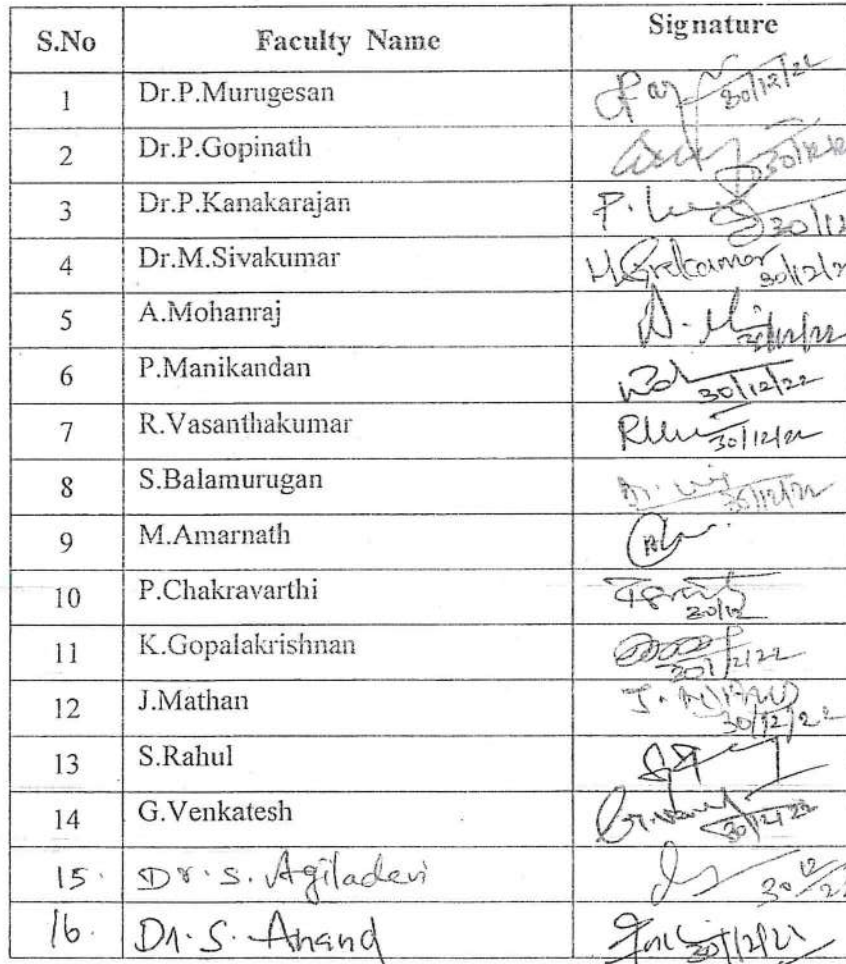 S.No Faculty Name Signature
1 Dr.P.Murugesan 30/12/22
2 Dr.P.Gopinath 30/12/22
3 Dr.P.Kanakarajan P. 30/12
4 Dr.M.Sivakumar M.Sivakumar 30/12/22
5 A.Mohanraj 30/12/22
6 P.Manikandan 30/12/22
7 R.Vasanthakumar 30/12/22
8 S.Balamurugan 30/12/22
9 M.Amarnath
10 P.Chakravarthi 30/12
11 K.Gopalakrishnan 30/12/22
12 J.Mathan 30/12/22
13 S.Rahul
14 G.Venkatesh 30/12/22
15. Dr. S. Agiladevi 30/12/22
16. Dr. S. Anand 30/12/22